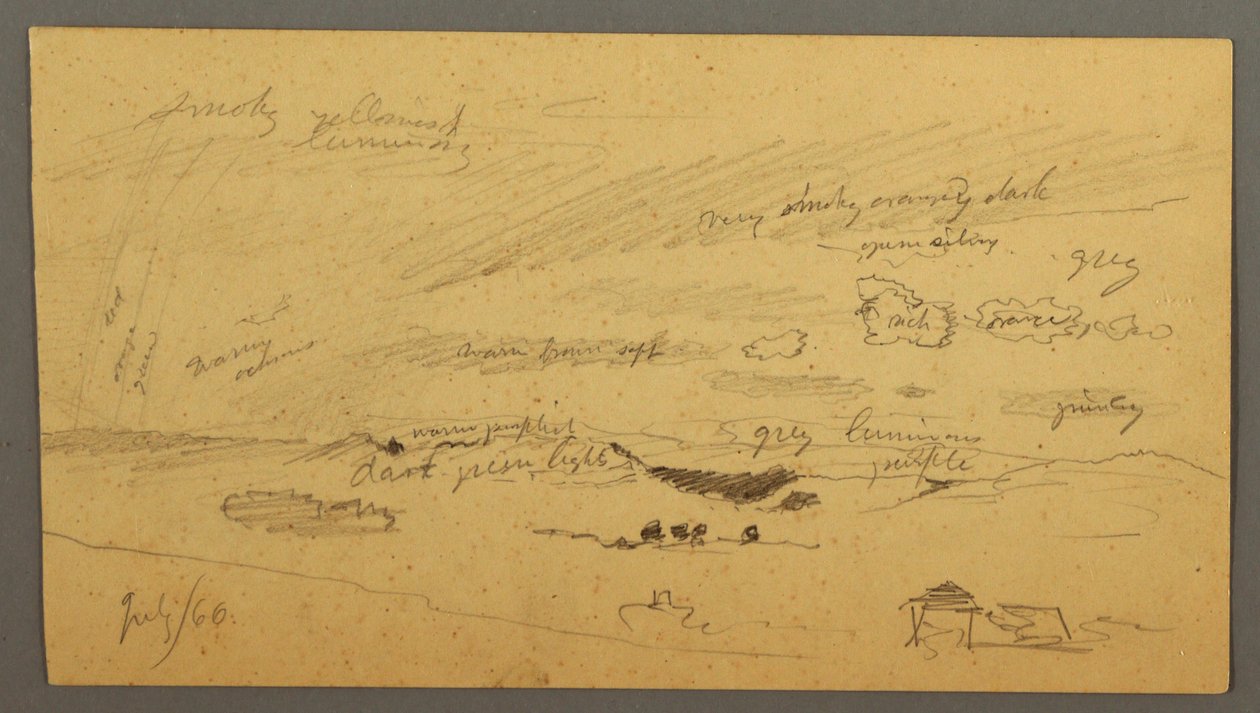 smoky yellowish
luminous
very smoky orangey dark
grey
red
orange
green
warm
rich
orange
warm brown soft
warm purplish
grey luminous
purple
dark green light
July/66